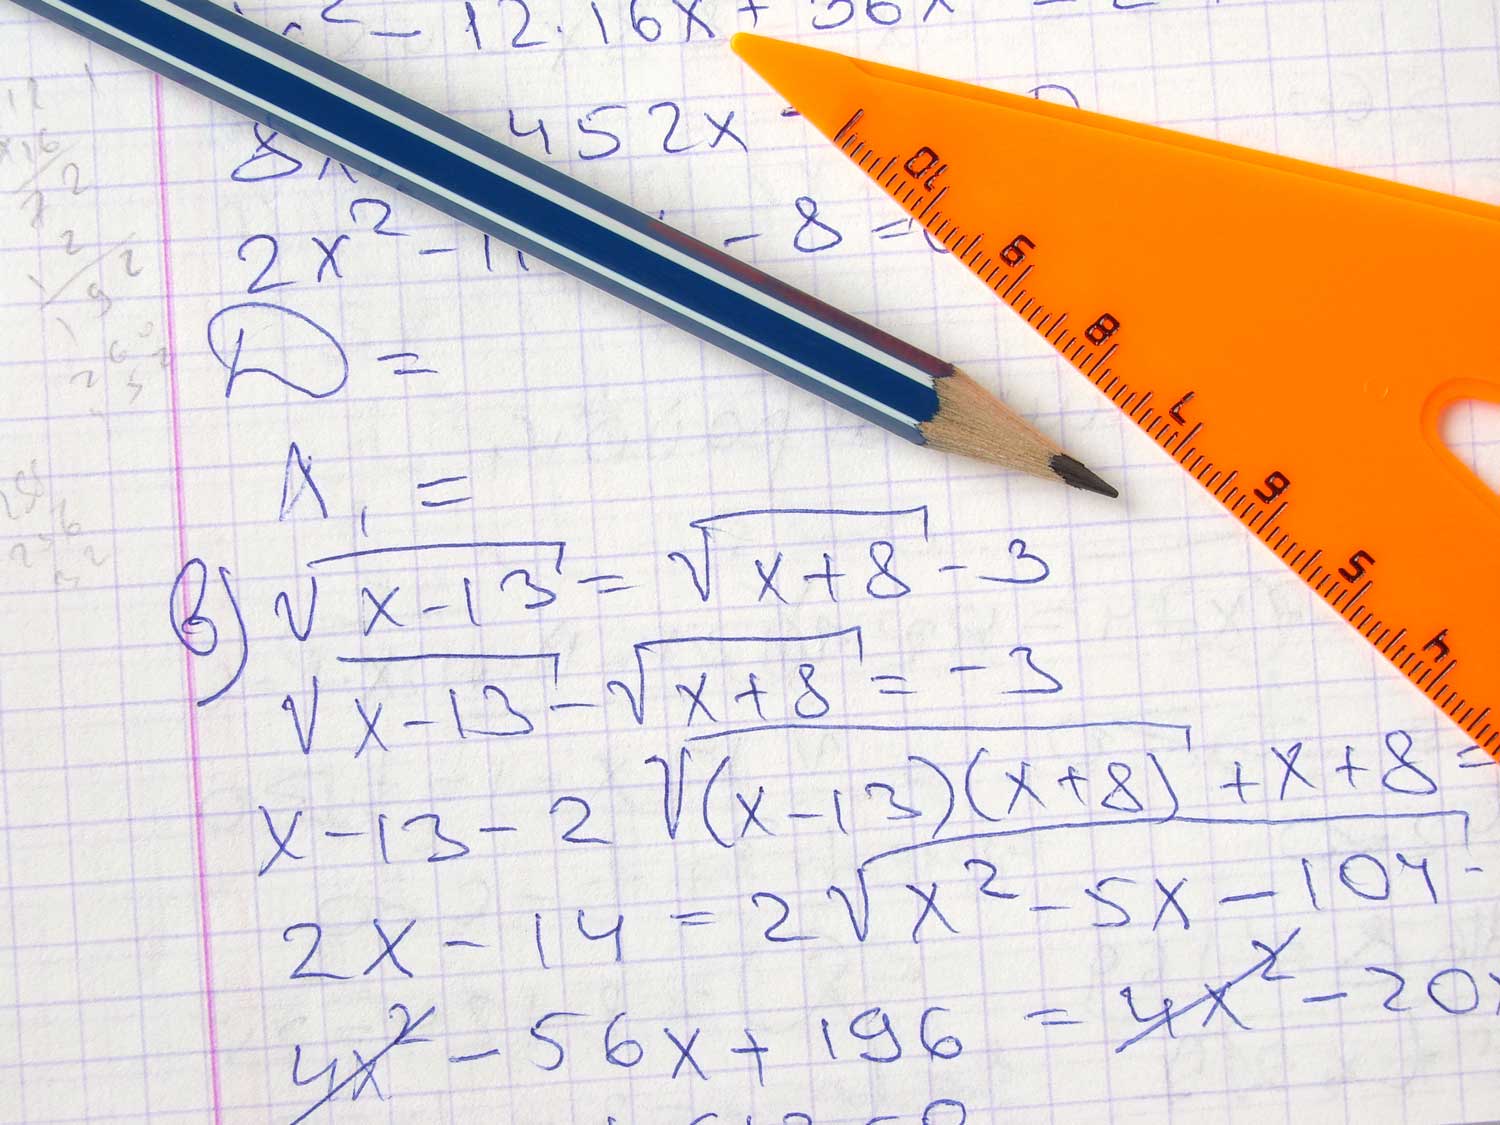 ² - 12.16x + 36x
8x 452x -
2x² - 11 - 8 =
D =
X₁ =
в) √(x-13) = √(x+8) - 3
√(x-13) - √(x+8) = -3
x-13-2 √((x-13)(x+8)) + x+8 =
2x - 14 = 2√(x² - 5x - 104
4x² - 56x + 196 = 4x² - 20x
10
9
8
7
6
5
4